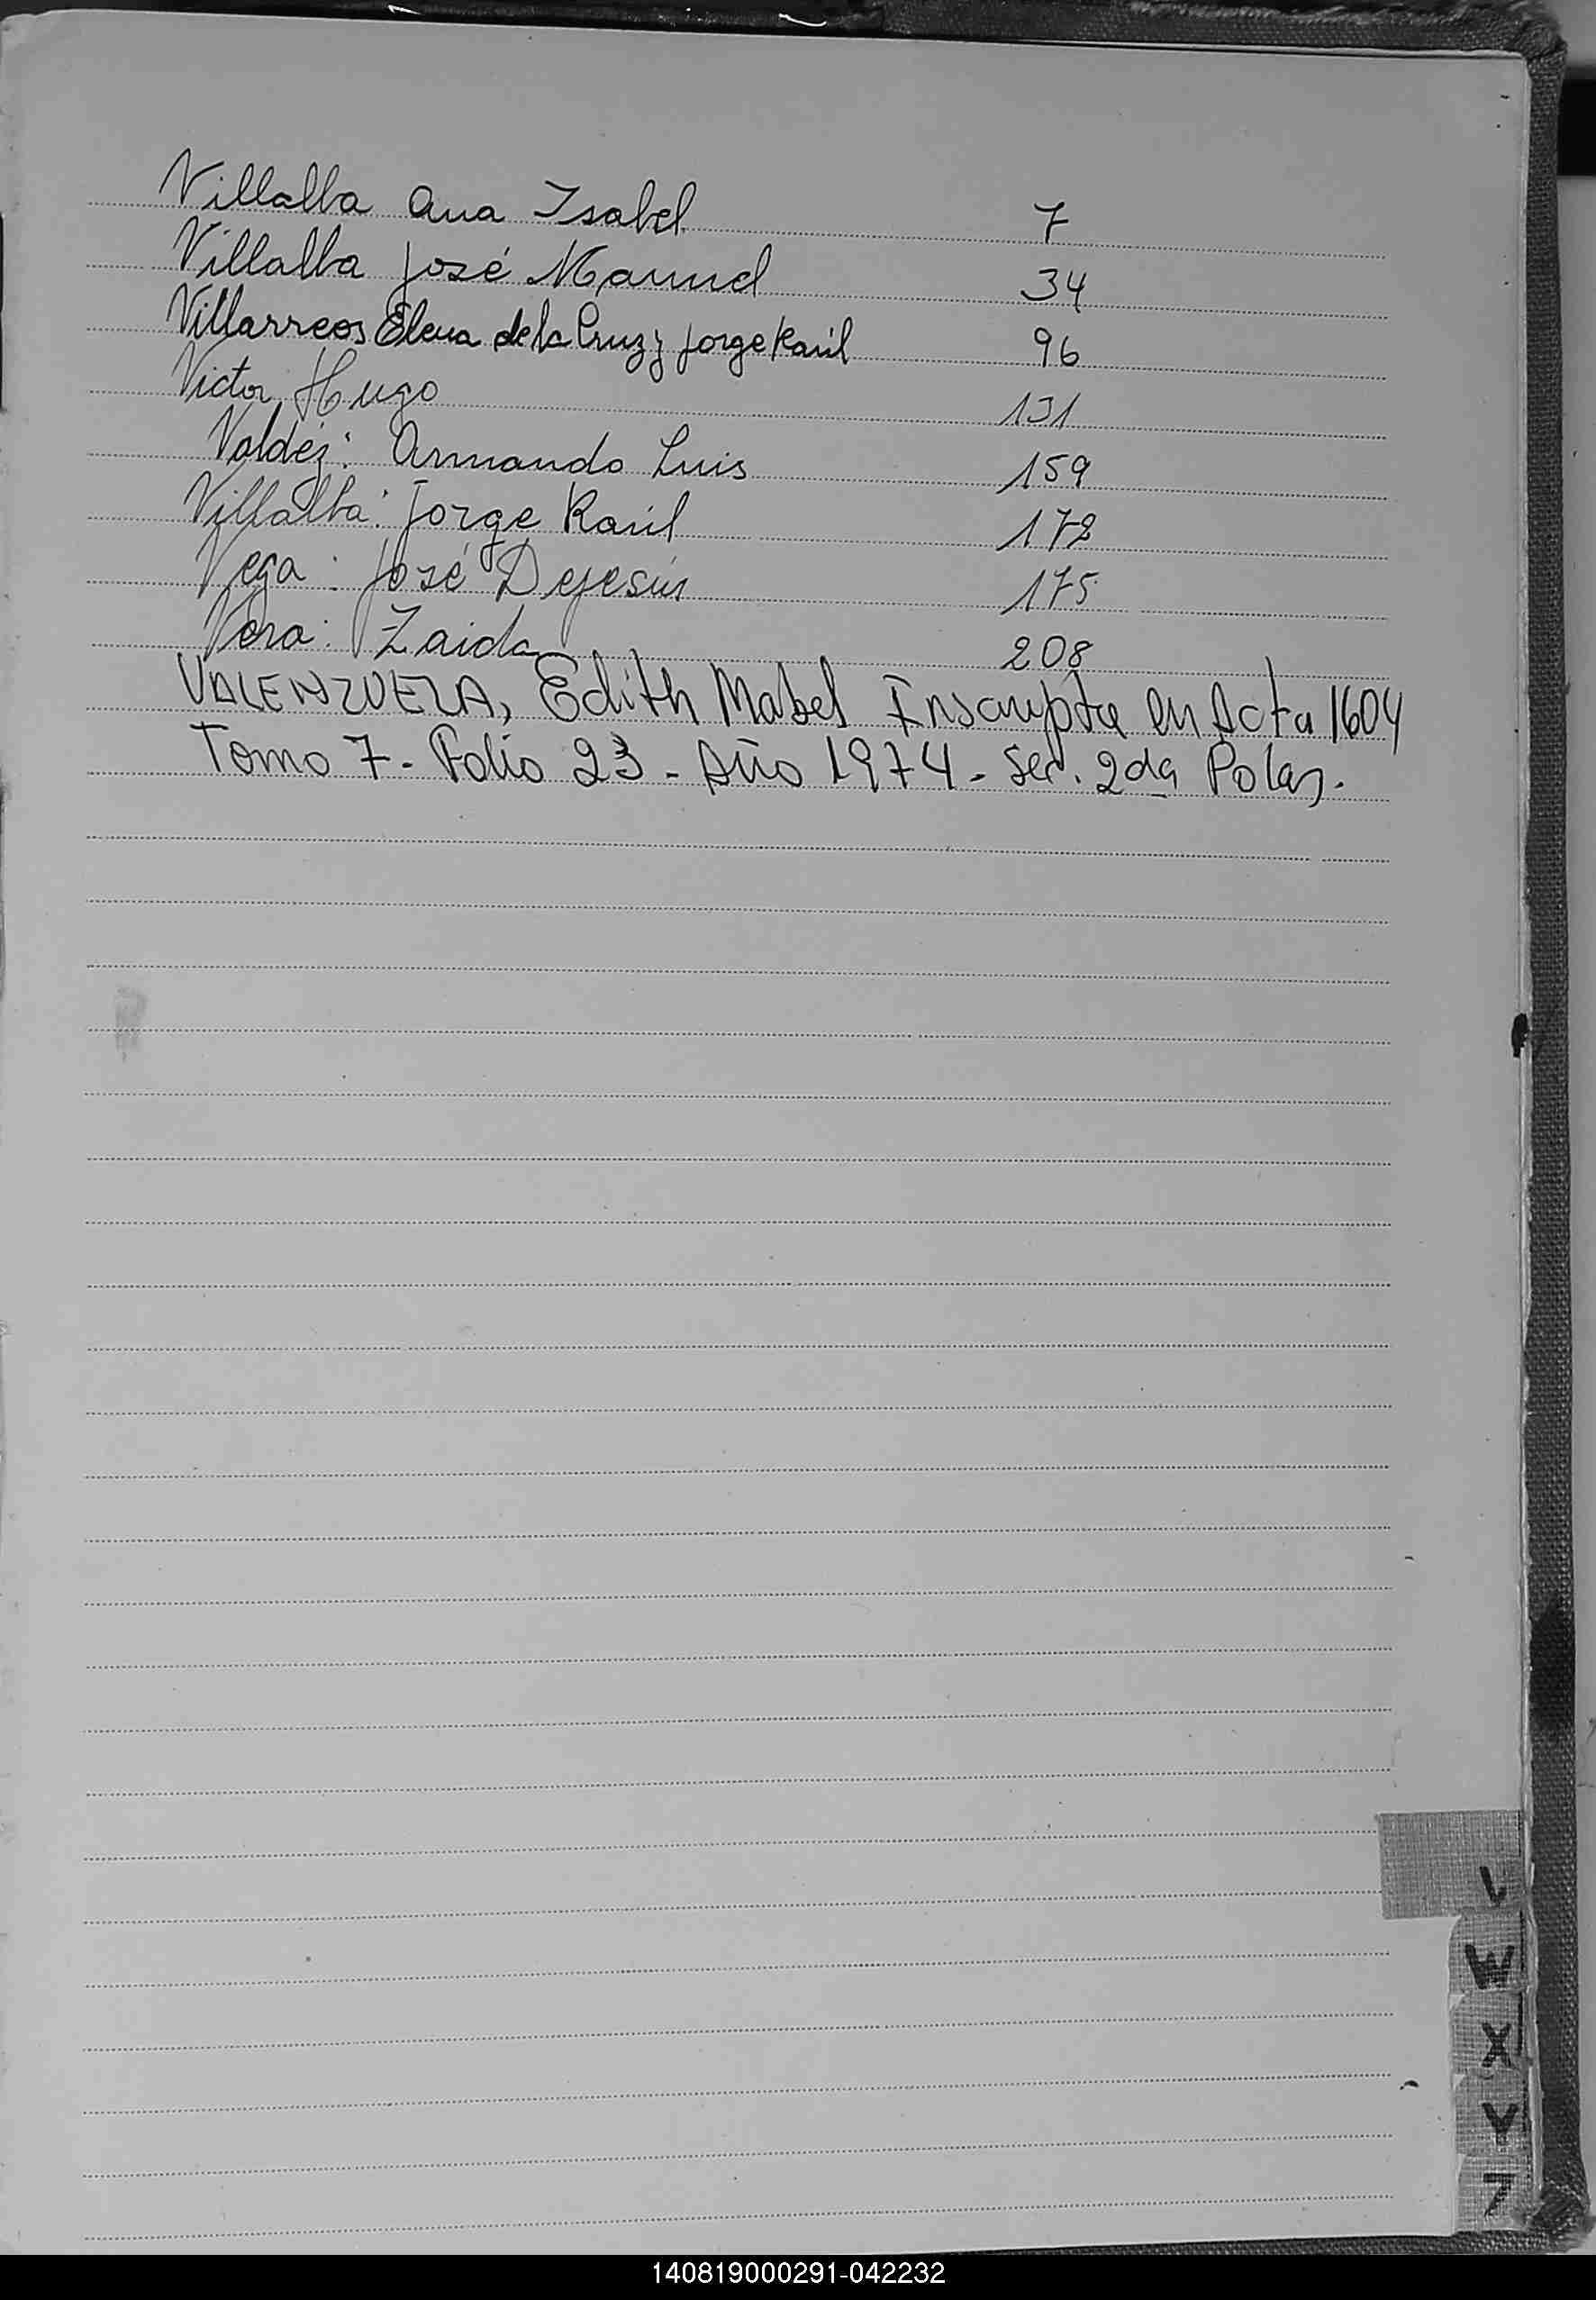 Villalba Ana Isabel 7
Villalba José Manuel 34
Villarreos Elena de la Cruz y Jorge Raúl 96
Victor Hugo 131
Valdéz: Armando Luis 159
Villalba: Jorge Raúl 172
Vega: José Dejesús 175
Vera: Zaida 208
VALENZUELA, Edith Mabel Inscripta en Acta 1604
Tomo 7 - Folio 23 - Año 1974 - Sec. 2da Polas.
V
W
X
Y
Z
140819000291-042232